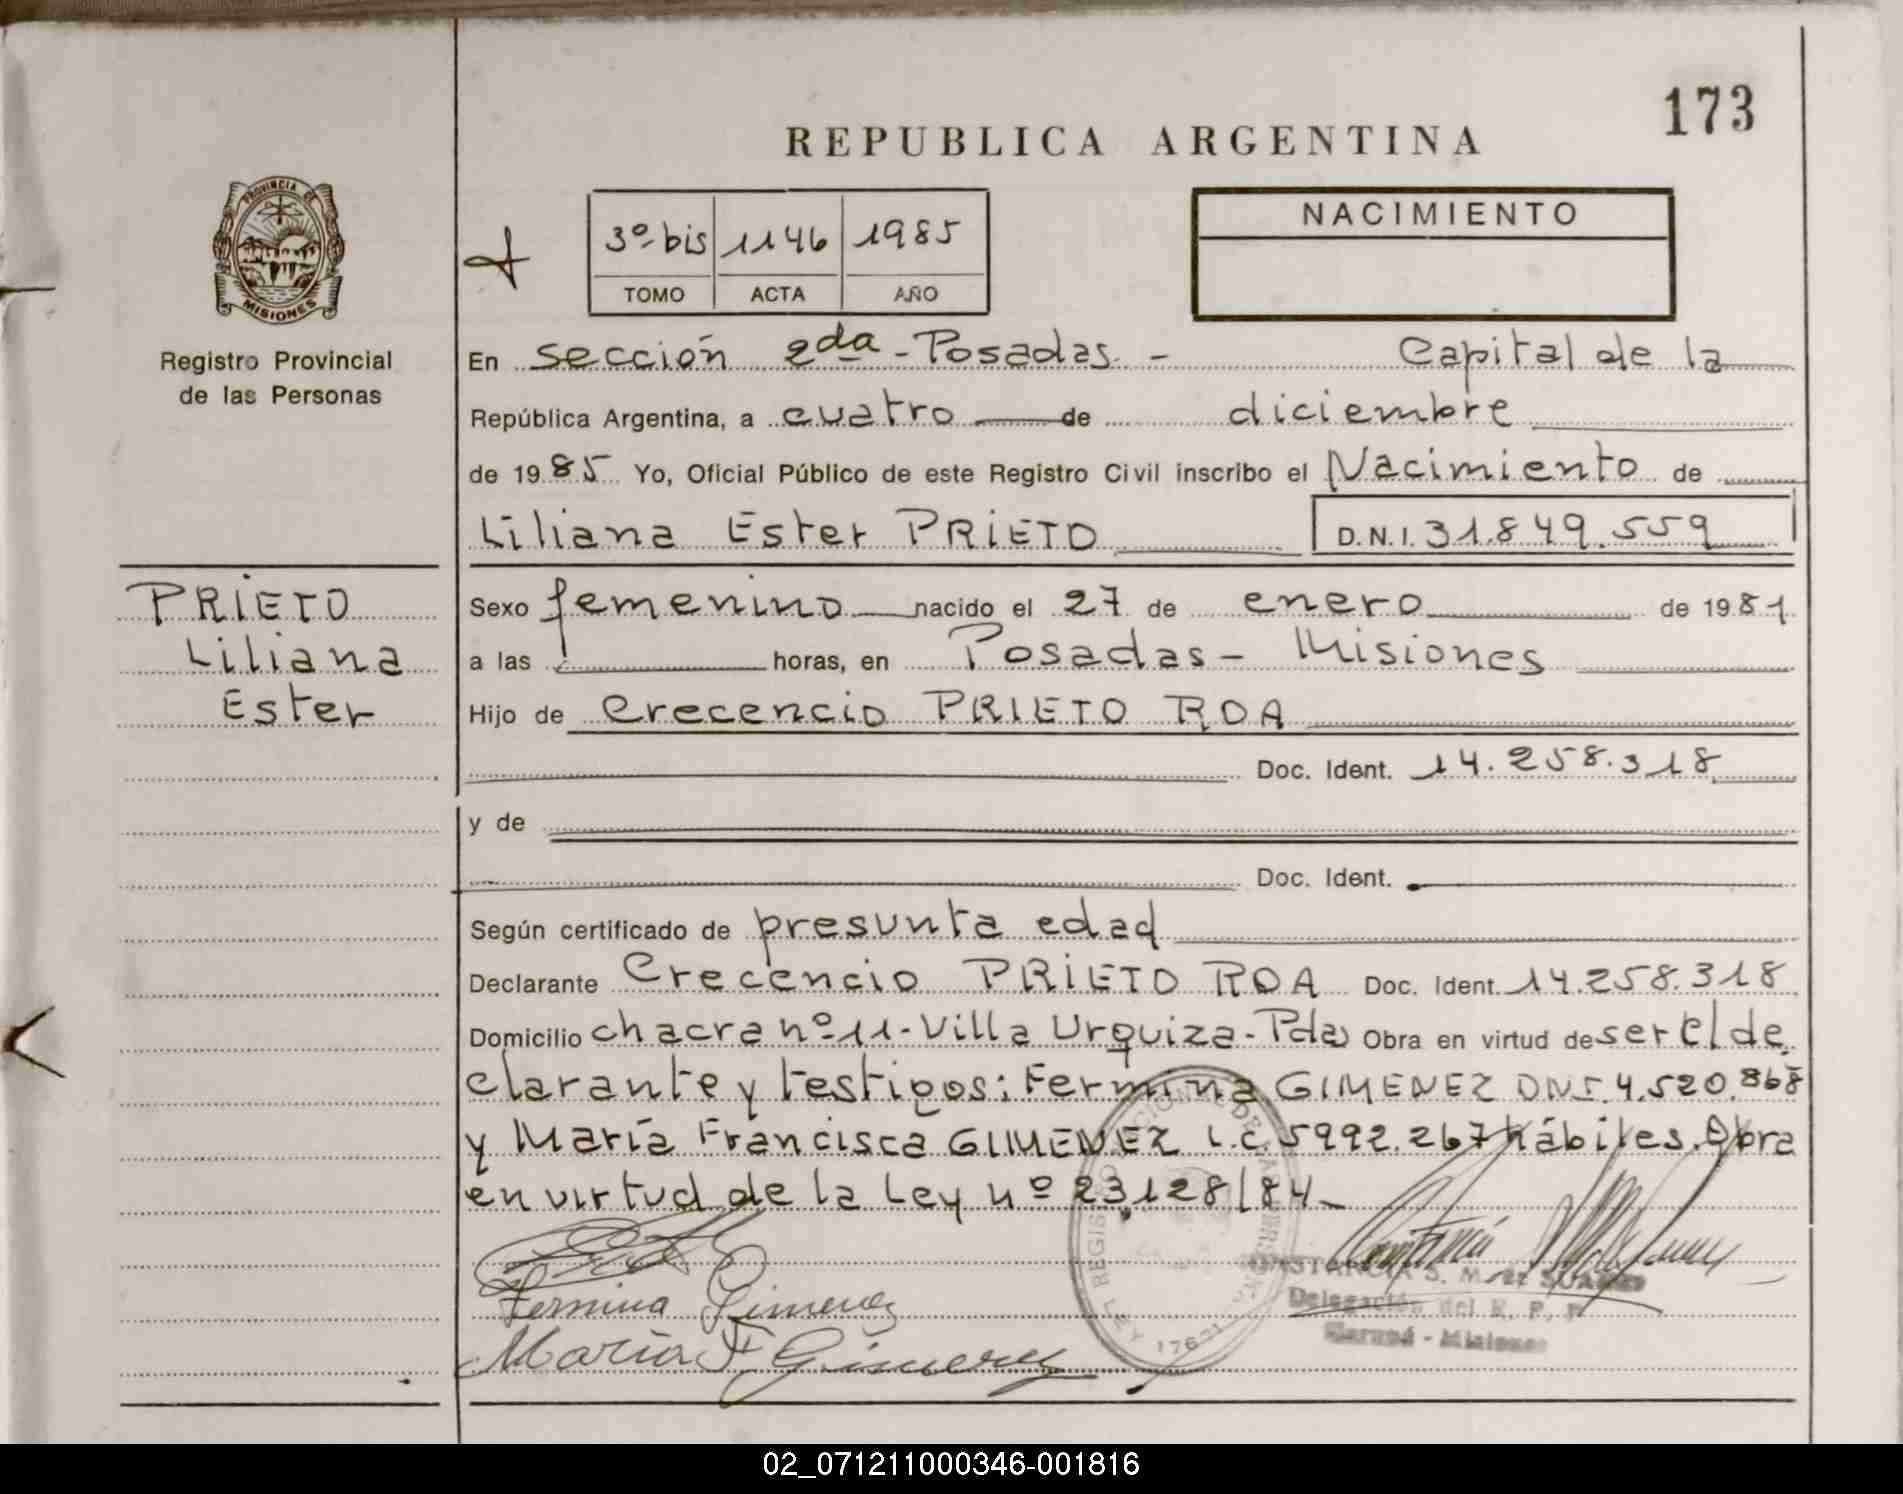 173
REPUBLICA ARGENTINA
PROVINCIA DE
MISIONES
Registro Provincial
de las Personas
3º bis 1146 1985
TOMO ACTA AÑO
NACIMIENTO
En sección 2da - Posadas - Capital de la
República Argentina, a cuatro de diciembre
de 1985 Yo, Oficial Público de este Registro Civil inscribo el Nacimiento de
Liliana Ester PRIETO D.N.I. 31.849.559
PRIETO
Liliana
Ester
Sexo femenino nacido el 27 de enero de 1981
a las horas, en Posadas - Misiones
Hijo de Crecencio PRIETO ROA
Doc. Ident. 14.258.318
y de
Doc. Ident.
Según certificado de presunta edad
Declarante Crecencio PRIETO ROA Doc. Ident. 14.258.318
Domicilio chacra nº 11 - Villa Urquiza - Pdas Obra en virtud de ser el de
clarante y testigos: Fermina GIMENEZ DNI. 4.520.868
y María Francisca GIMENEZ L.C. 5992.267 hábiles. Obra
en virtud de la Ley nº 23.128/84 -
Fermina Gimenez
María F Gimenez
LEY 17671
CONSTANCIA S. M. de SUAREZ
Delegación del R. P. P.
Garupá - Misiones
02_071211000346-001816